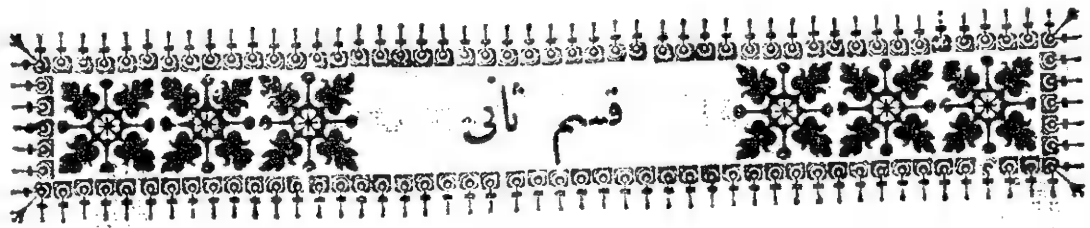 قسم ثانی